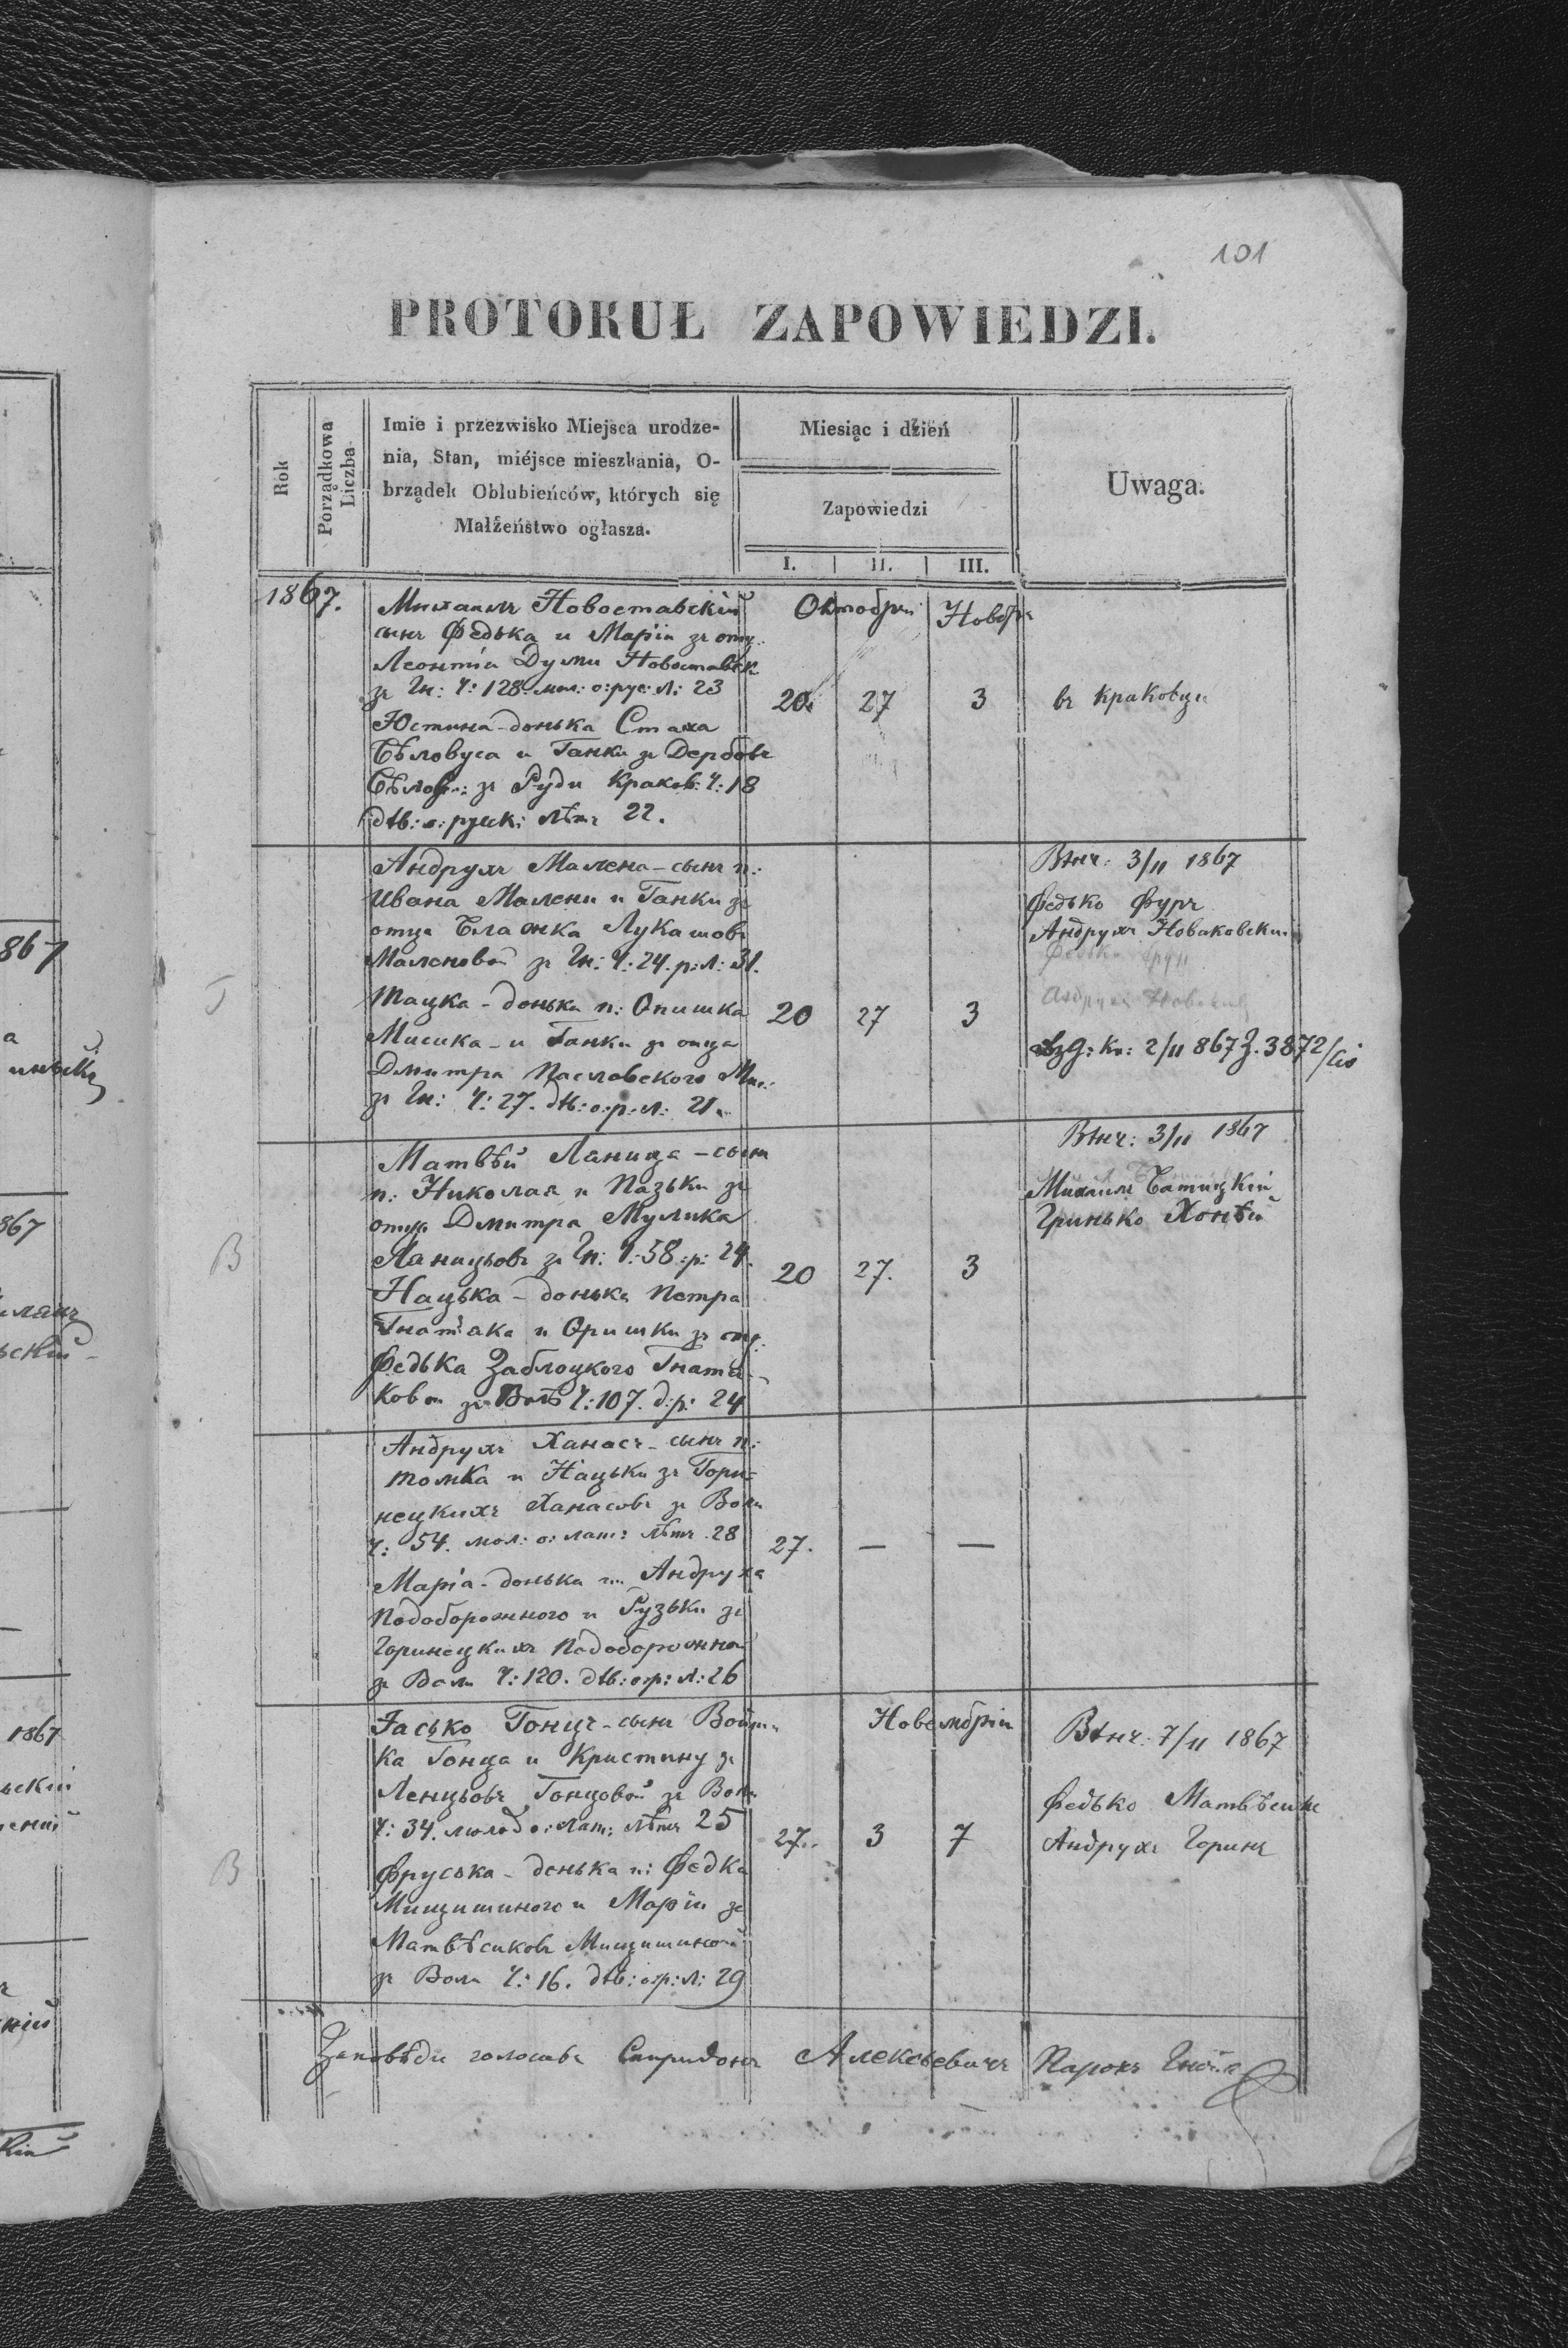 101
PROTOKUŁ ZAPOWIEDZI.
Rok
Porządkowa Liczba
Imie i przezwisko Miejsca urodze-
nia, Stan, miéjsce mieszkania, O-
brządek Oblubieńców, których się
Małżeństwo ogłasza.
Miesiąc i dzień
Zapowiedzi
I. II. III.
Uwaga.
1867.
Михаилъ Новоставскій
сынъ Федька и Маріи зъ отц.
Леонтіа Думи Новоставск
зъ Гн: Ч: 128. мол: о: рус: л: 23
Юстина - донька Стаха
Бѣловуса и Ганки зъ Дербовъ
Бѣлов: зъ Руди Краков: Ч: 18
дѣв: о: руск: лѣтъ 22.
Октобрія Новбр
20. 27 3
въ Краковци
Андрухъ Малена - сынъ п:
Ивана Малени и Ганки зъ
отца Блажка Лукашовъ
Маленовой зъ Гн: Ч: 24. р: л: 31.
Мацка - донька п: Опишка
Мисика - и Ганки зъ отца
Дмитра Пасловского Мис:
зъ Гн: Ч: 27. дѣв: о: р: л: 21.
20 27 3
Вѣнч: 3/11 1867
Федько Фуръ
Андрухъ Новаковски
2/11 867 З. 3872/
Т
Матвѣй Ланица - сынъ
п: Николая и Пазьки зъ
отца Дмитра Мулика
Ланицьовъ зъ Гн: Ч: 58: р: 24.
Нацька - донька Петра
Гнатʼака и Оришки зъ отц:
Федька Заблоцкого Гнатя-
ковой зъ Волѣ Ч: 107. д: р: 24
20 27. 3
Вѣнч: 3/11 1867
Михаилъ Батицкій
Гринько Хонѣй
В
Андрухъ Ханасъ - сынъ п:
Томка и Нацьки зъ Гори-
нецкихъ Ханасовъ зъ Воли
Ч: 54. мол: о: лат: лѣтъ 28
Маріа - донька Андруха
Подоборожного и Рузьки зъ
Горинецкихъ Подоборожной
зъ Воли Ч: 120. дѣв: о: р: л: 26
27. — —
Яасько Гонцъ - сынъ Войт
ка Гонца и Кристину зъ
Ленцьовъ Гонцовой зъ Воли
Ч: 34. молод о: лат: лѣтъ 25
Фруська - донька п: Федка
Мищишиного и Маріи зъ
Матвѣсиковъ Мищишиной
зъ Воли Ч: 16. дѣв: о: р: л: 29
Новембрія
27. 3 7
Вѣнч: 7/11 1867
Федько Матвѣсик
Андрухъ Горинъ
В
Заповѣди голосивъ Спиридонъ Алексѣевичъ Парохъ